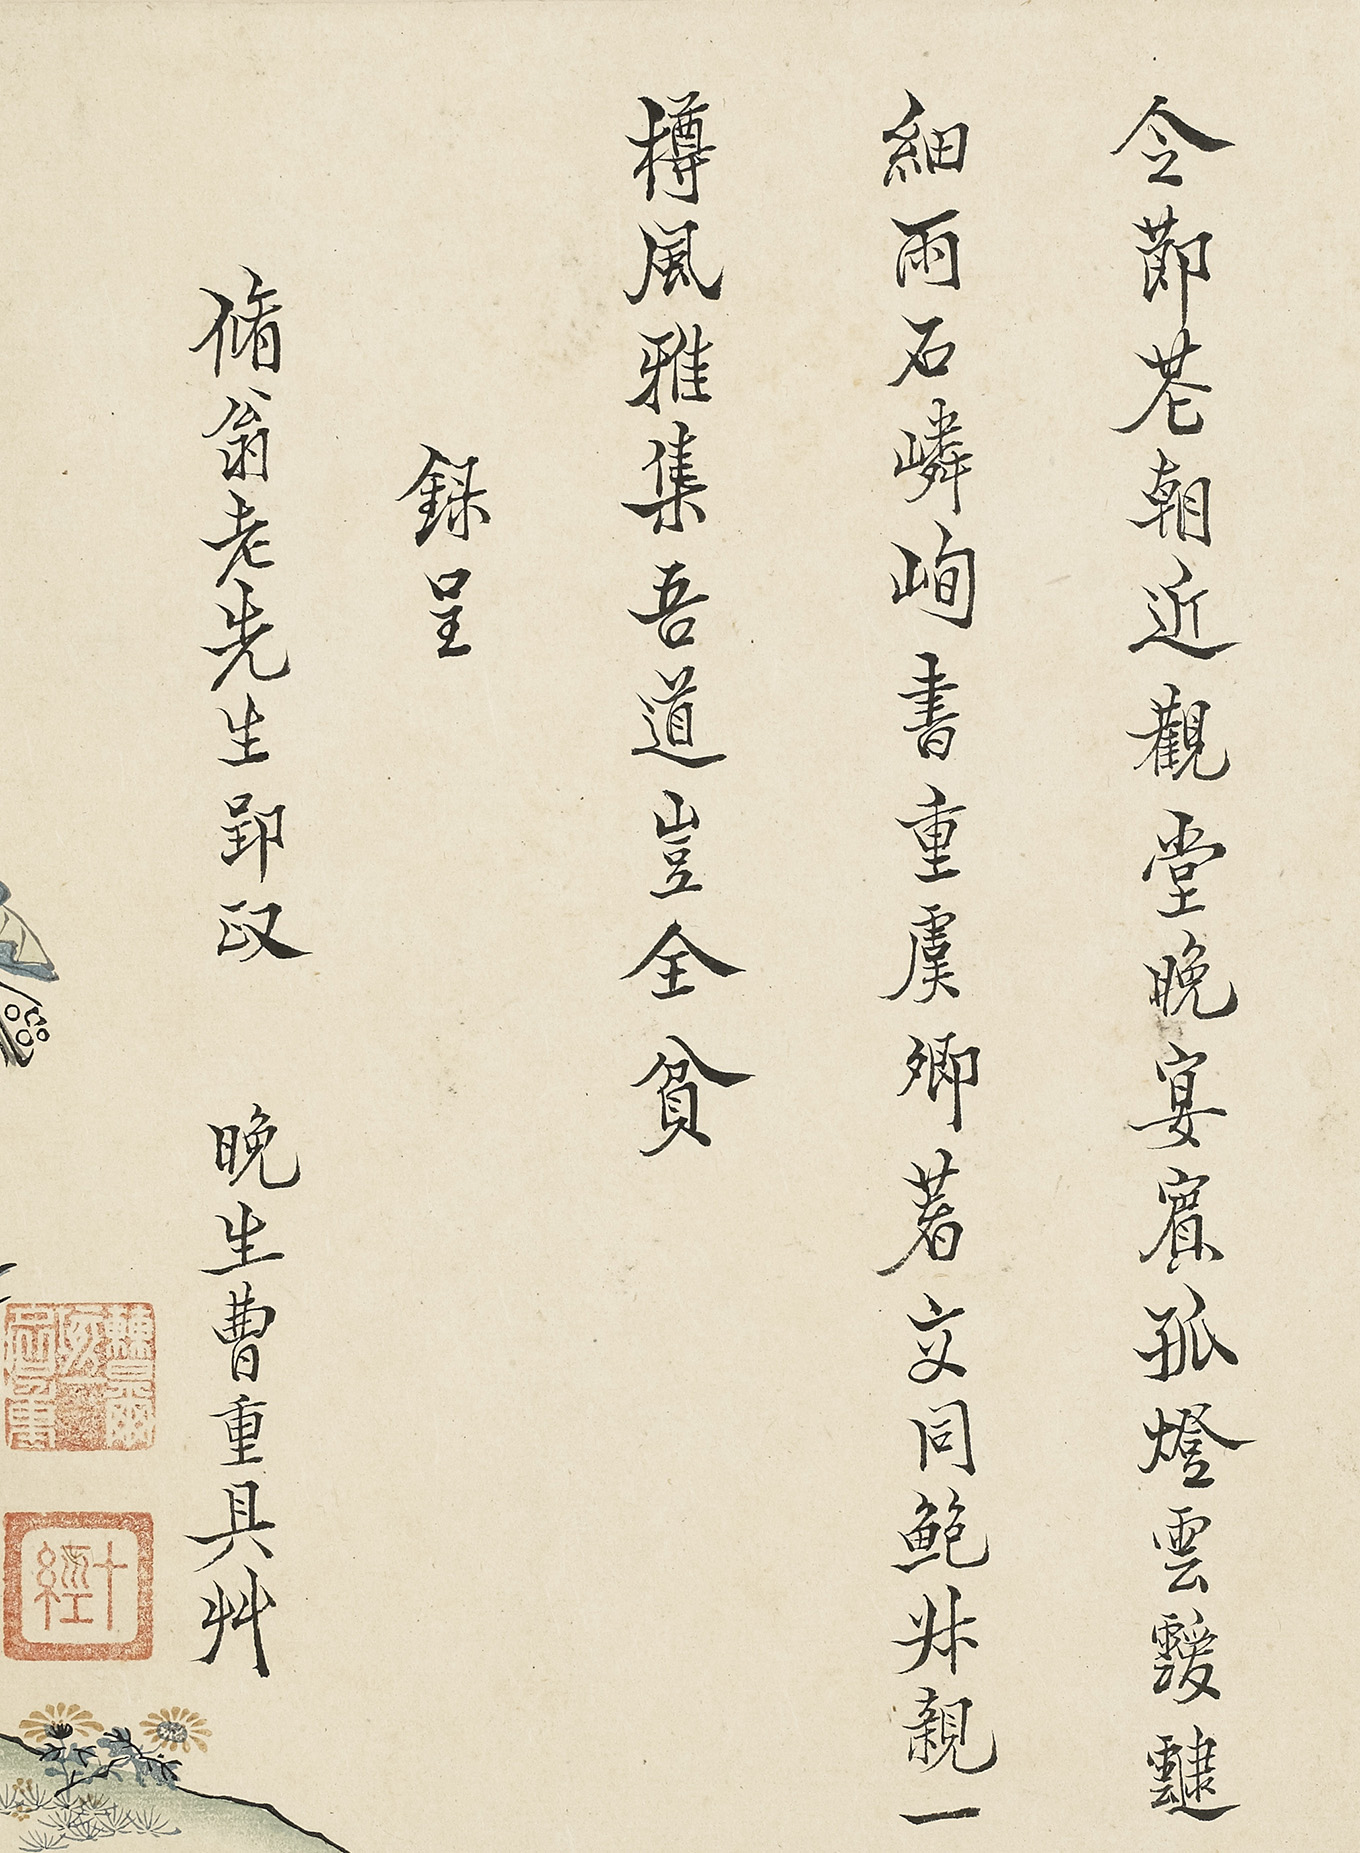 令節花朝近觀堂晚宴賓孤燈雲靉靆
細雨石嶙峋書重虞卿著交同鮑叔親一
樽風雅集吾道豈全貧
錄呈
脩翁老先生郢政 晚生曹重具艸
十經